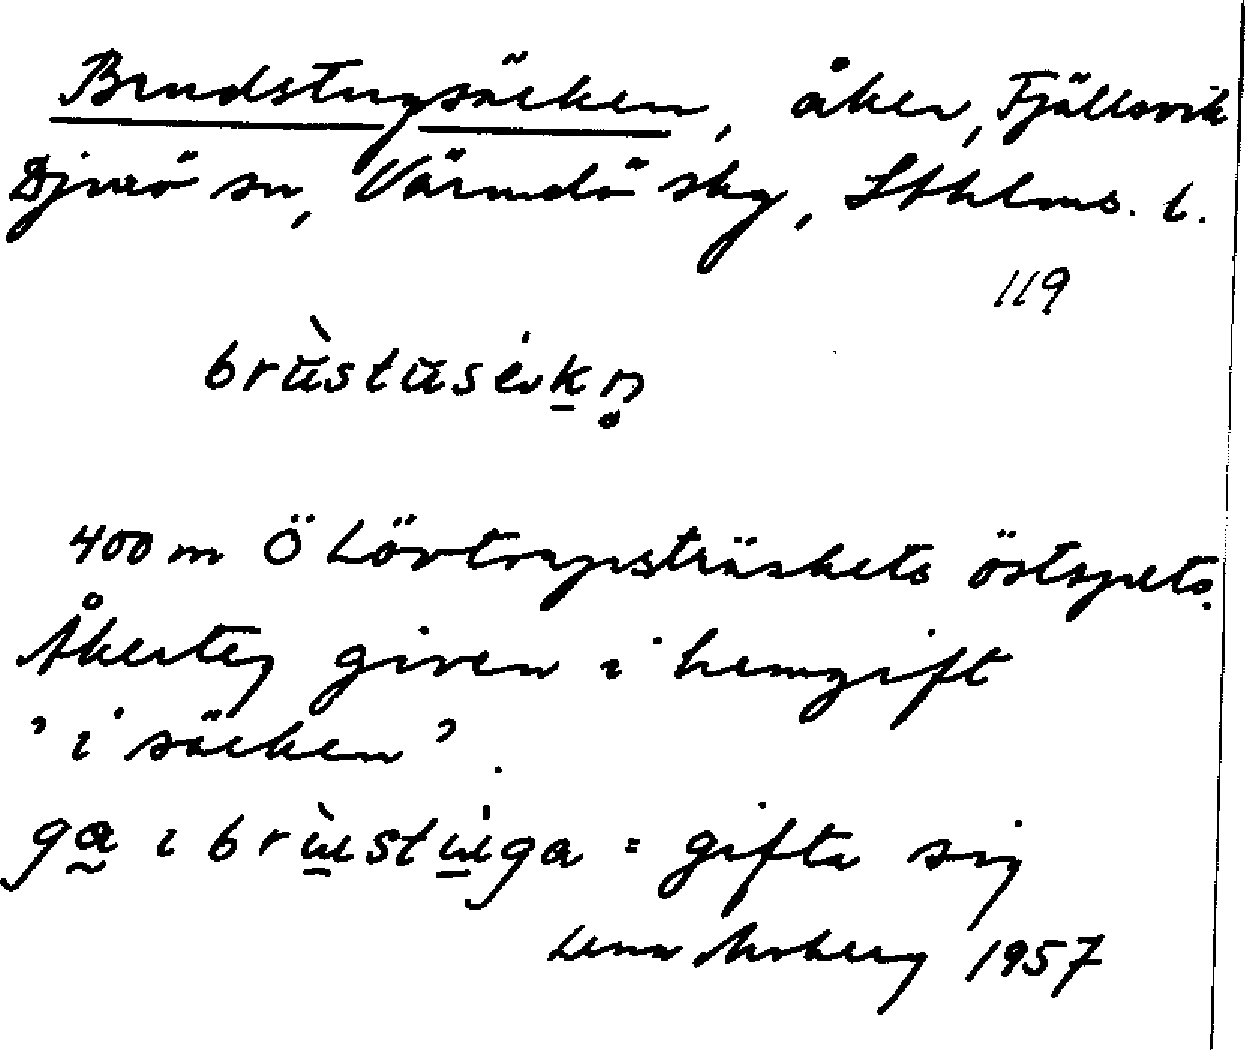 Brudstugsäcken, åker, Fjällsvik
Djurö sn, Värmdö skg, Sthlms. l.
119
400 m Ö Lövtorpsträskets östspets.
Åkerteg given i hemgift
'i säcken'.
ga i brùstúga = gifta sig
Lena Moberg 1957